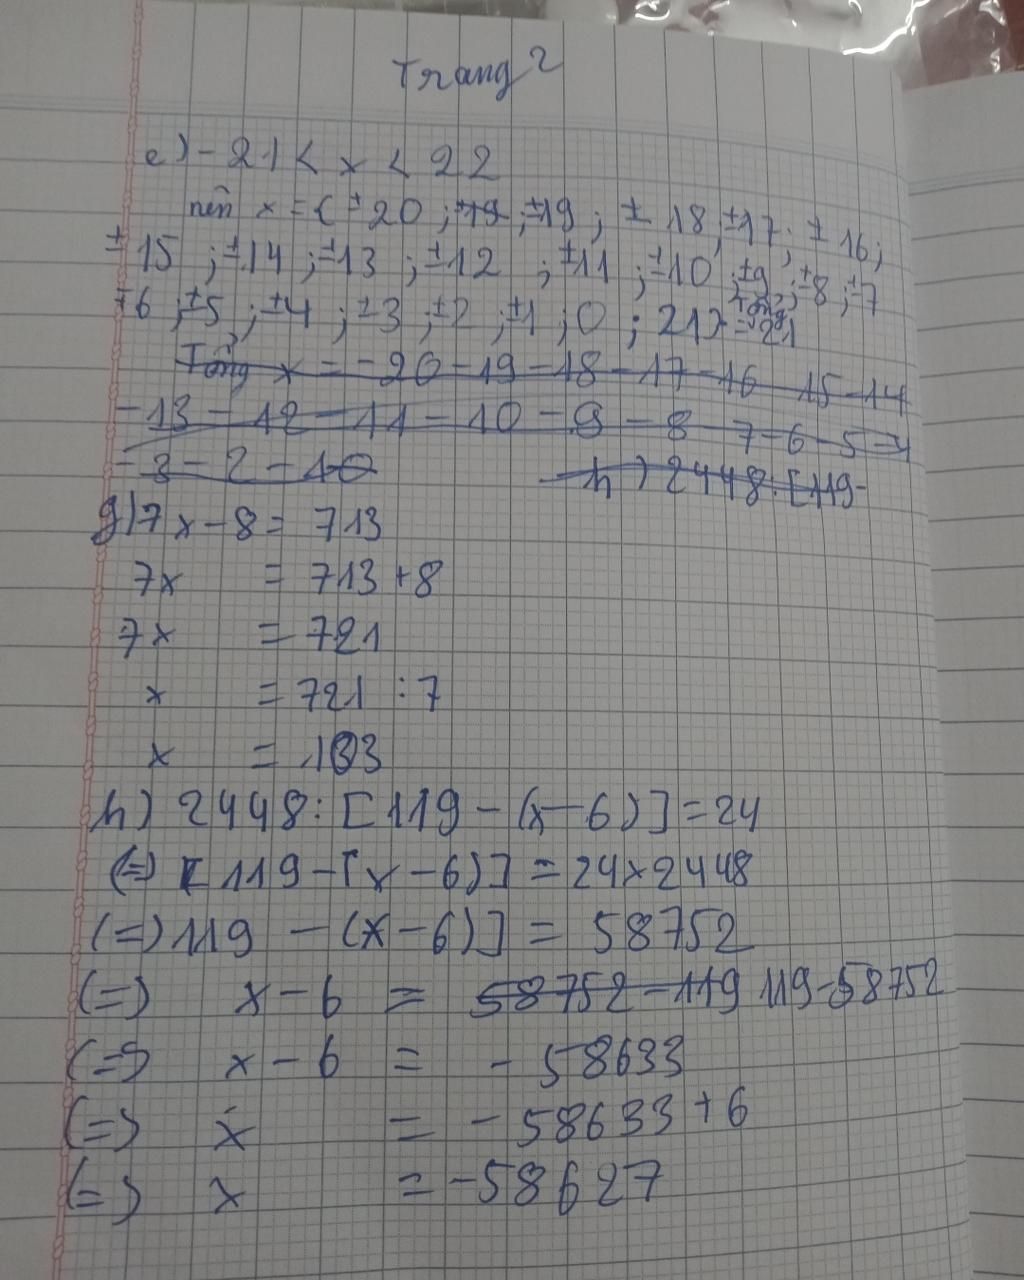 Trang 2
e) -21 < x < 22
nên x = { ±20 ; ±19 ; ±19 ; ±18 ; ±17 ; ±16 ;
±15 ; ±14 ; ±13 ; ±12 ; ±11 ; ±10 ; ±9 ; ±8 ; ±7
±6 ; ±5 ; ±4 ; ±3 ; ±2 ; ±1 ; 0 ; 21} Tổng = 21
Tổng x = -20-19-18-17-16 15-14
-13-12-11-10-9-8 7-6-5-4
-3-2-10
h) 2448:[119-
g) 7x-8 = 713
7x = 713+8
7x = 721
x = 721 : 7
x = 103
h) 2448 : [119 - (x-6)] = 24
(=) [119-[x-6)] = 24x2448
(=) 119 - (x-6)] = 58752
(=) x-6 = 58752-119 119-58752
(=) x-6 = -58633
(=) x = -58633+6
(=) x = -58627